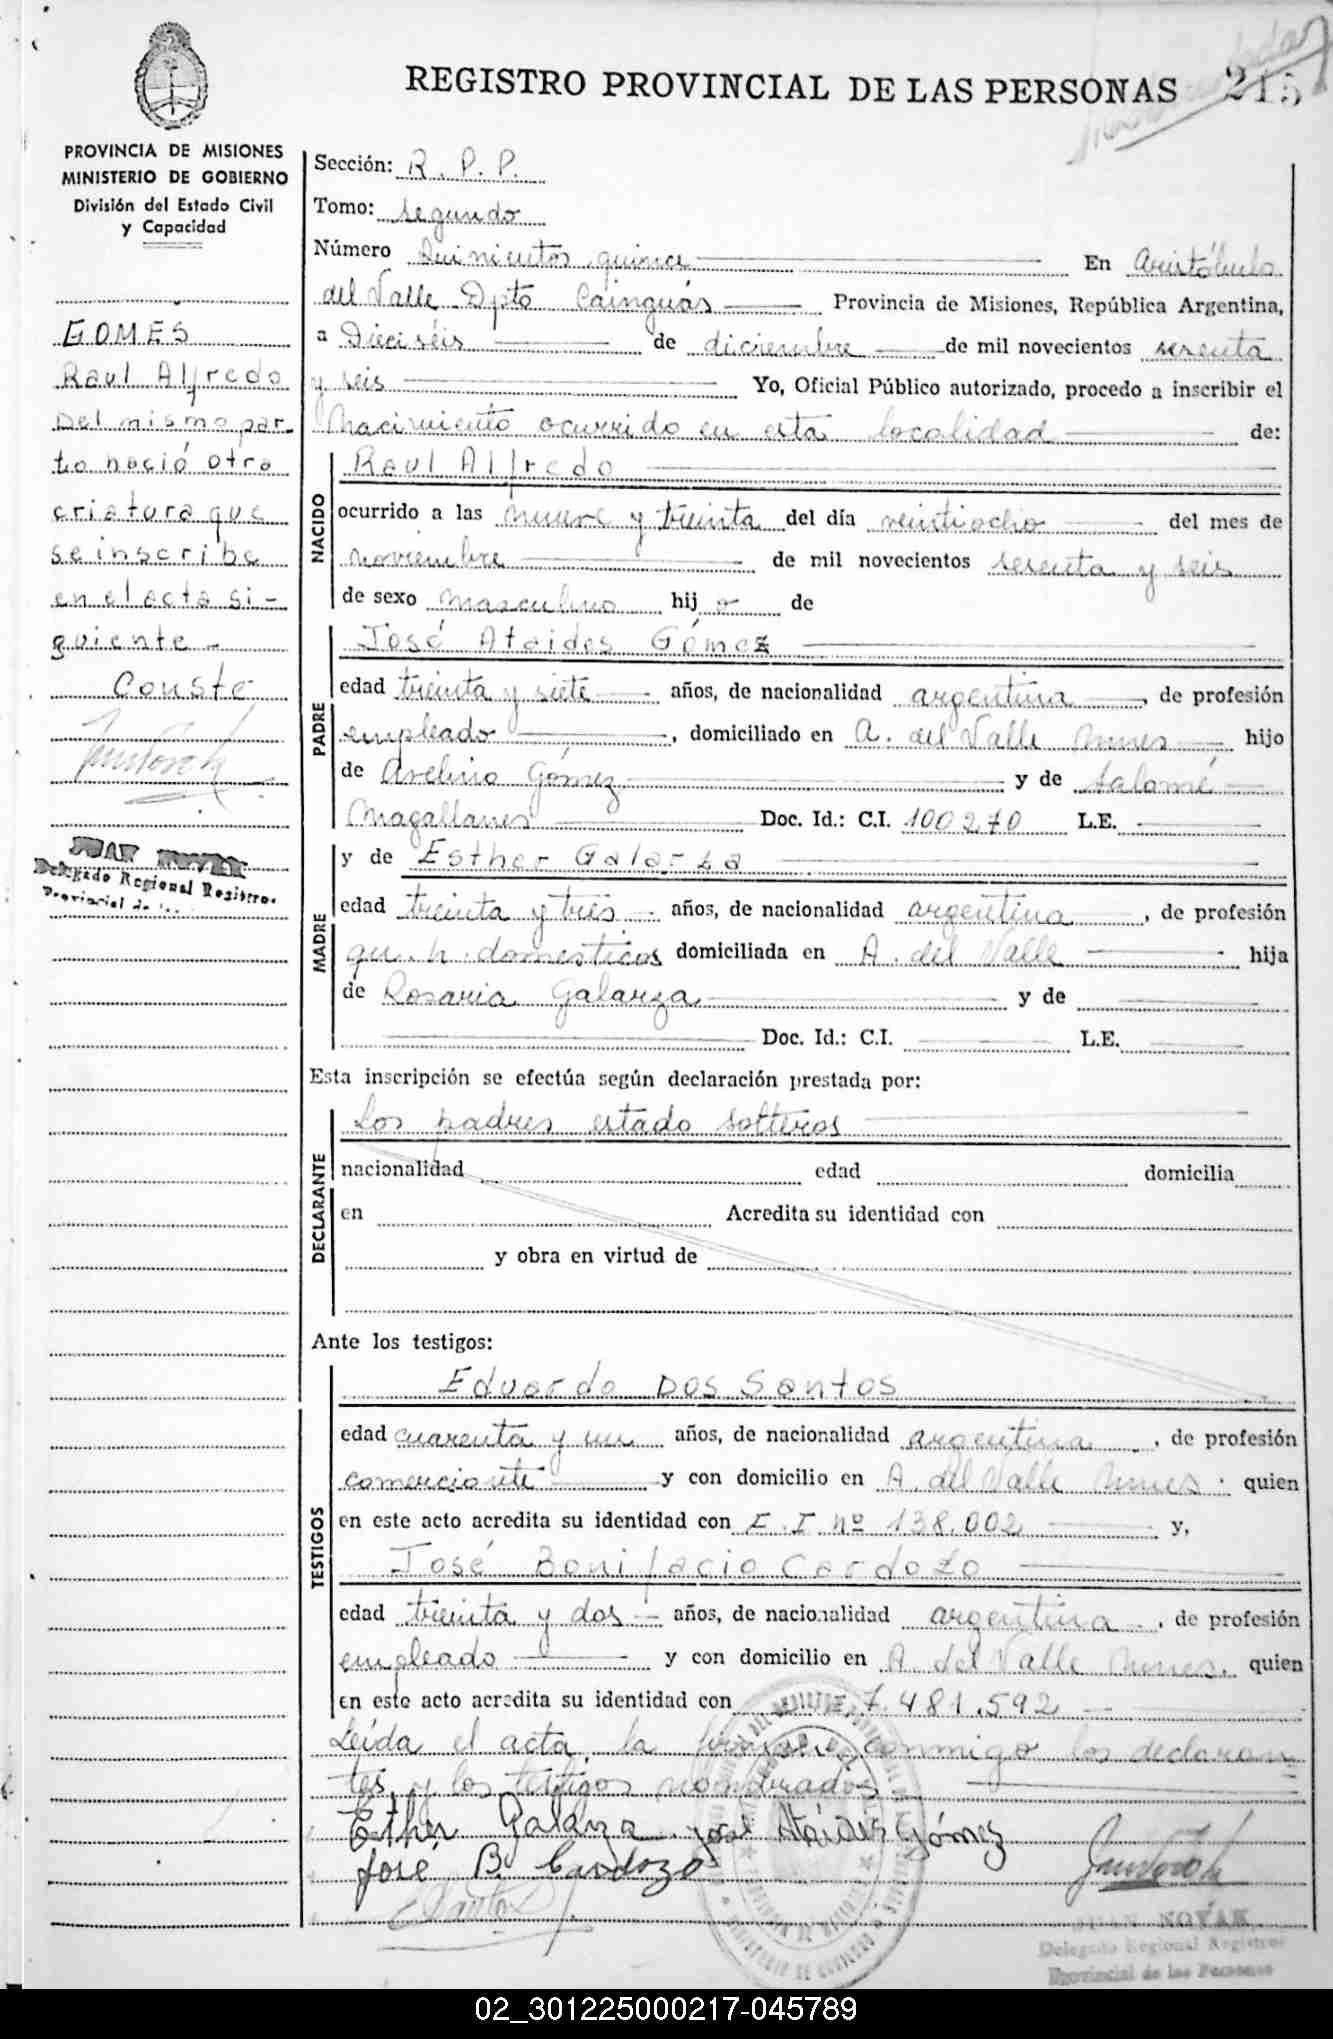 REGISTRO PROVINCIAL DE LAS PERSONAS 215
PROVINCIA DE MISIONES
MINISTERIO DE GOBIERNO
División del Estado Civil
y Capacidad
GOMES
Raul Alfredo
Del mismo par-
to nació otra
criatura que
se inscribe
en el acta si-
guiente -
Conste
JUAN NOVAK
Delegado Regional Registro
Provincial de las
Sección: R. P. P.
Tomo: segundo
Número Quinientos quince En Aristóbulo
del Valle Dpto Cainguás Provincia de Misiones, República Argentina,
a Dieciséis de diciembre de mil novecientos sesenta
y seis Yo, Oficial Público autorizado, procedo a inscribir el
Nacimiento ocurrido en esta localidad de:
NACIDO
Raul Alfredo
ocurrido a las nueve y treinta del día veintiocho del mes de
noviembre de mil novecientos sesenta y seis
de sexo masculino hij o de
PADRE
José Ataides Gómez
edad treinta y siete años, de nacionalidad argentina, de profesión
empleado, domiciliado en A. del Valle Mnes hijo
de Avelino Gómez y de Salomé
Magallanes Doc. Id.: C.I. 100270 L.E.
MADRE
y de Esther Galarza
edad treinta y tres años, de nacionalidad argentina, de profesión
qu. h. domésticos domiciliada en A. del Valle hija
de Rosaria Galarza y de
Doc. Id.: C.I. L.E.
Esta inscripción se efectúa según declaración prestada por:
DECLARANTE
Los padres estado solteros
nacionalidad edad domicilia
en Acredita su identidad con
y obra en virtud de
Ante los testigos:
TESTIGOS
Eduardo Dos Santos
edad cuarenta y un años, de nacionalidad argentina, de profesión
comerciante y con domicilio en A. del Valle Mnes. quien
en este acto acredita su identidad con C. I nº 138.002 y,
José Bonifacio Cardozo
edad treinta y dos años, de nacionalidad argentina, de profesión
empleado y con domicilio en A. del Valle Mnes. quien
en este acto acredita su identidad con 7.481.592
Leída el acta, la firman conmigo los declaran
tes y los testigos nombrados
Esther Galarza José Ataides Gómez
José B. Cardozo
JUAN NOVAK
Delegado Regional Registro
Provincial de las Personas
02_301225000217-045789